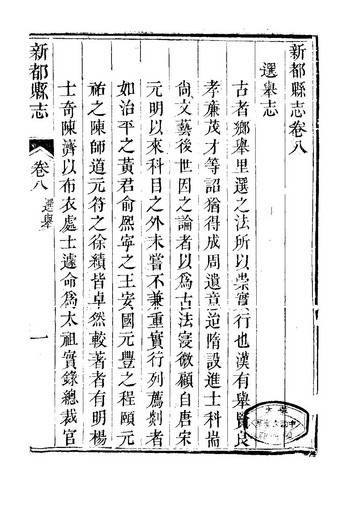 新都縣志卷八
選舉志
古者鄉舉里選之法所以崇實行也漢有舉賢良
孝廉茂才等詔猶得成周遺意迨隋設進士科耑
尙文藝後世因之論者以為古法寖微顧自唐宋
元明以來科目之外未嘗不兼重實行列薦剡者
如治平之黃君俞熙寧之王安國元豐之程頤元
祐之陳師道元符之徐積皆卓然較著者有明楊
士奇陳濟以布衣處士遽命為太祖實錄總裁官
新都縣志
卷八
選舉
一